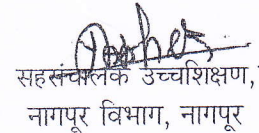 सहसंचालक उच्चशिक्षण,
नागपूर विभाग, नागपूर